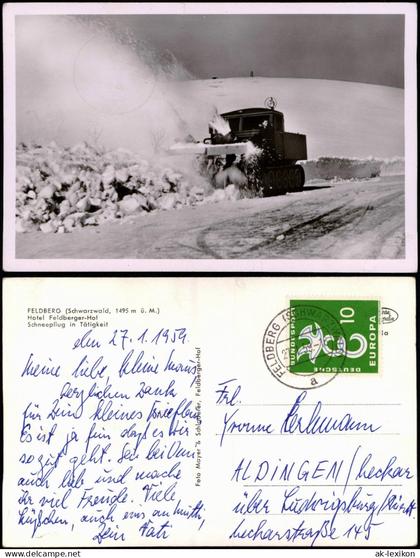 FELDBERG (Schwarzwald, 1495 m ü. M.)
Hotel Feldberger-Hof
Schneepflug in Tätigkeit
den 27.1.1959.
Meine liebe, kleine
Herzlichen Dank
für Dein kleines
Es ist ja fein daß es Dir
so gut geht. Sei
auch lieb und mache
ihr viel Freude. Viele
Küßchen, auch an Mutti,
Dein Vati
Foto Mayer & Schlatterer, Feldberger-Hof
FELDBERG (SCHWARZW
a
DEUTSCHE BUNDESPOST
10
EUROPA
Frl.
Yvonne Perlmann
ALDINGEN/Neckar
über Ludwigsburg/
Neckarstraße 145
www.ak-lexikon.de